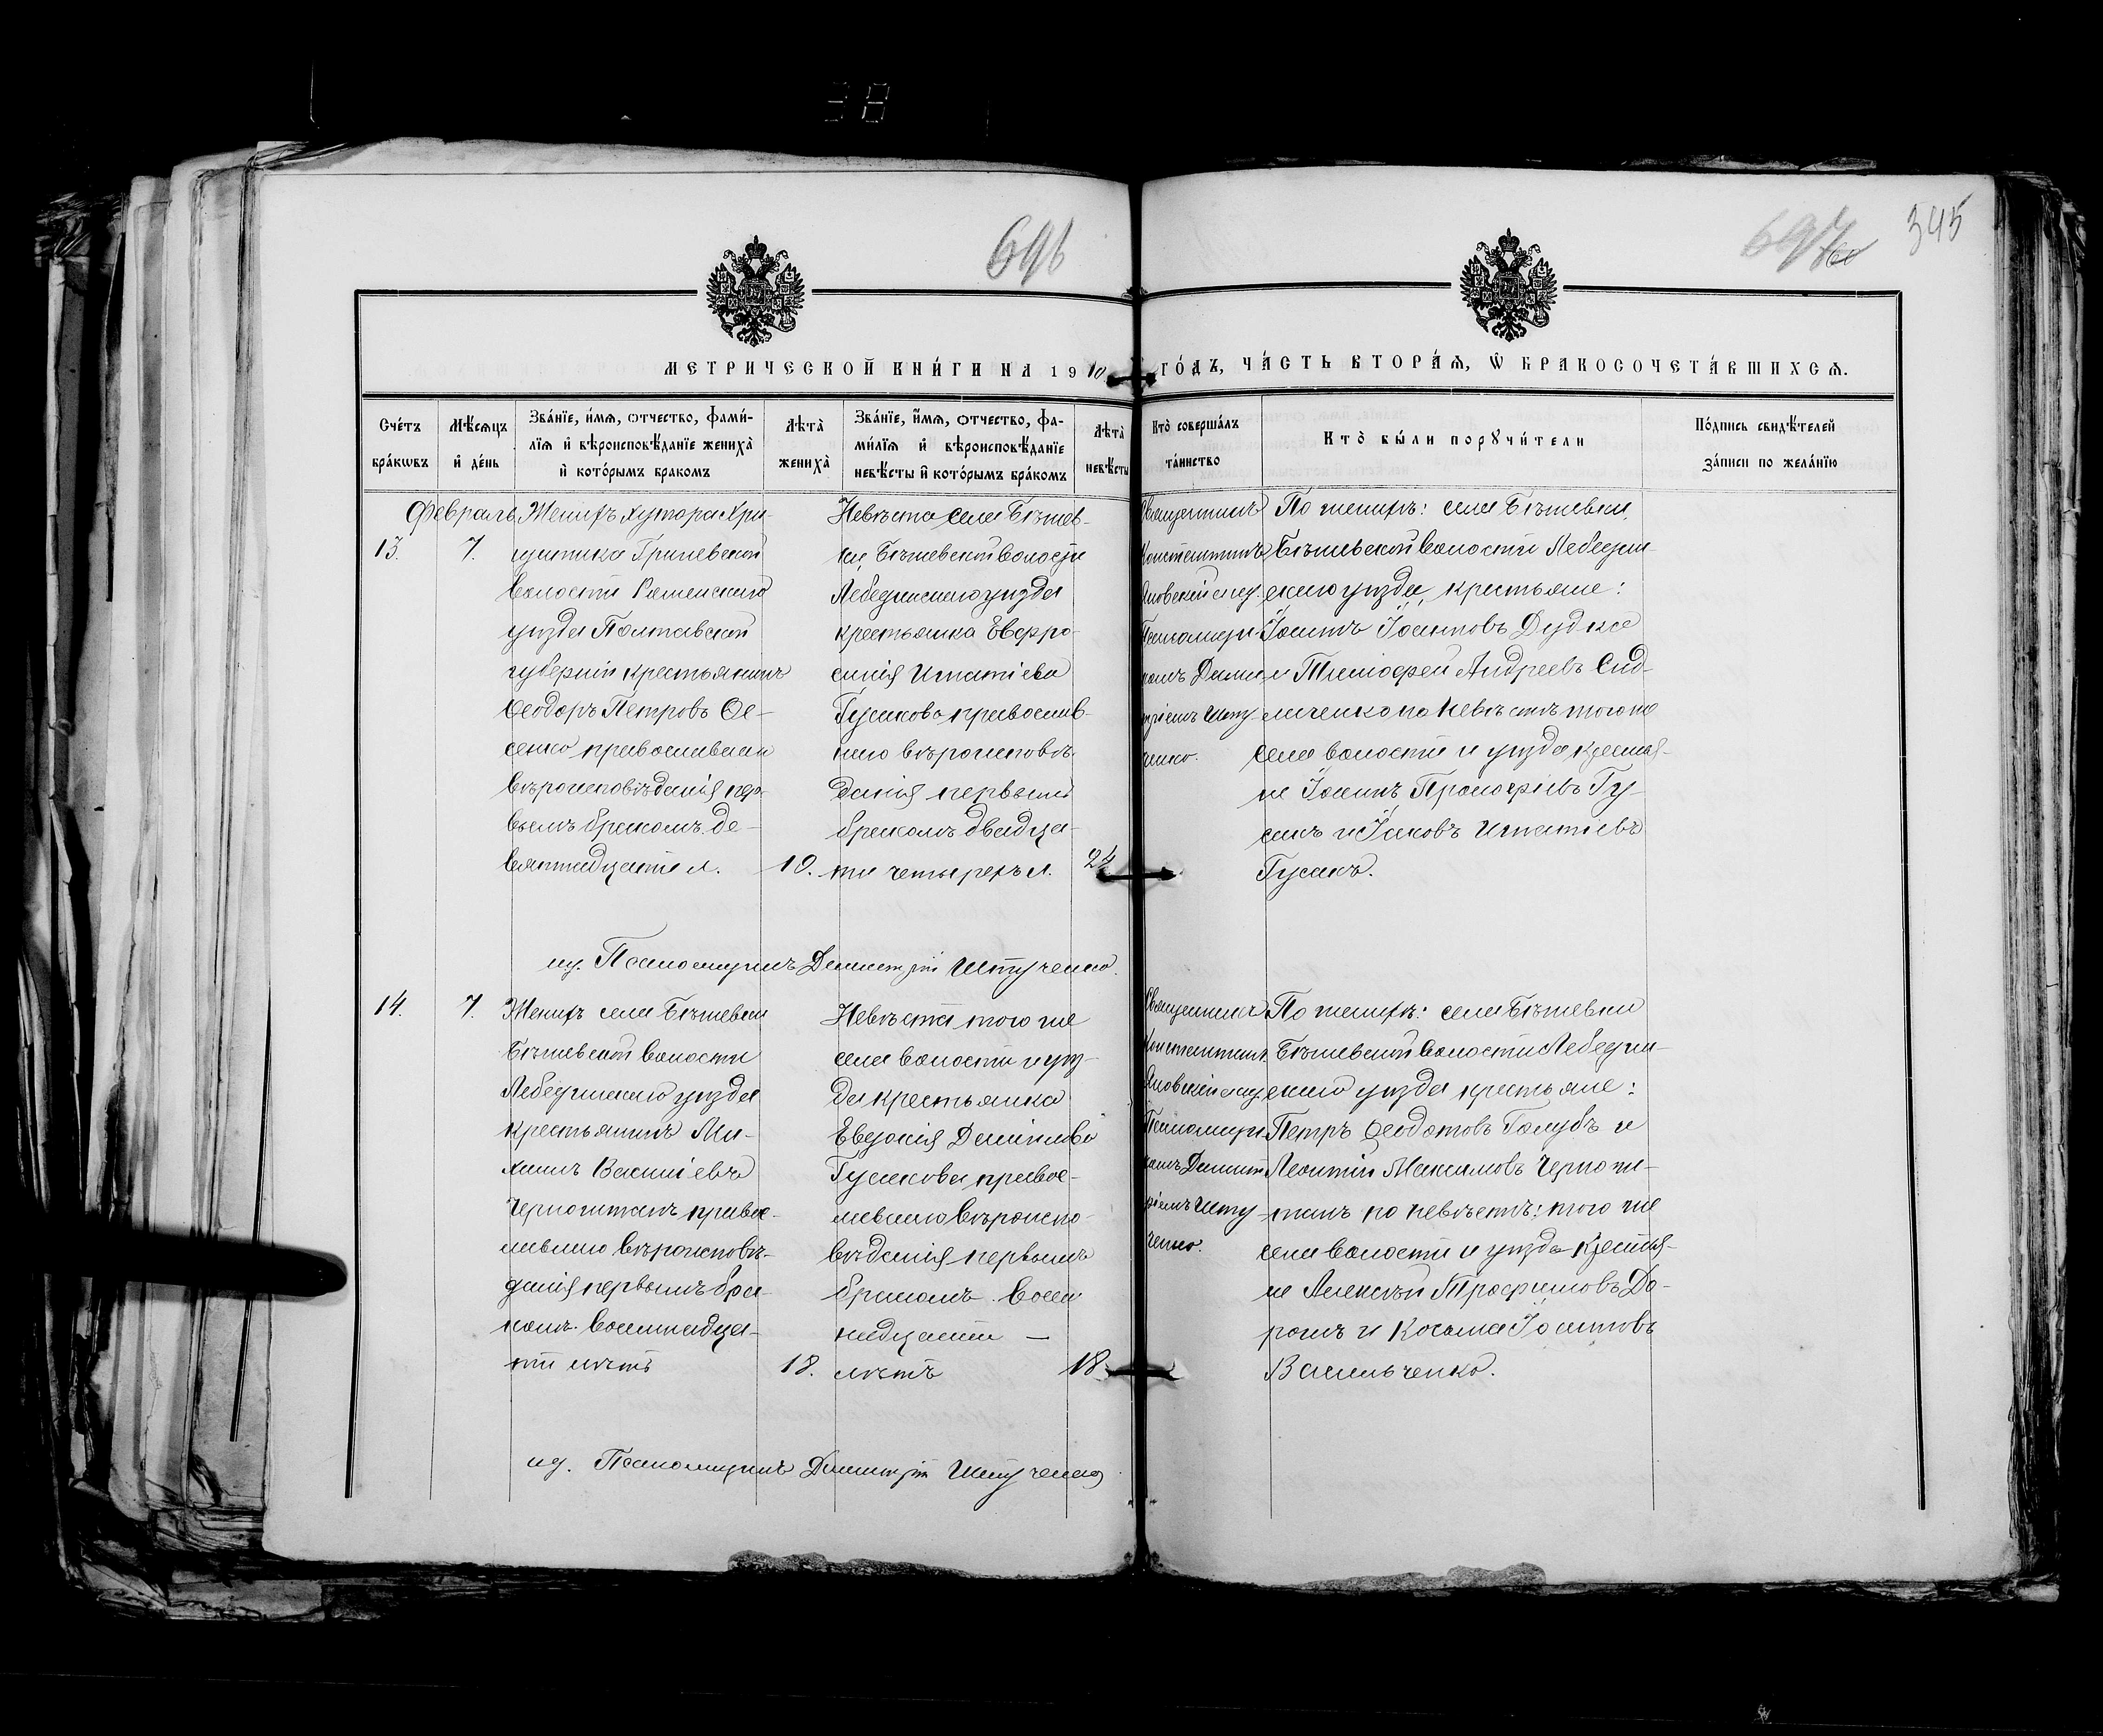 696
697
345
МЕТРИЧЕСКОЙ КНИГИ НА 1910 ГОДЪ, ЧАСТЬ ВТОРАЯ, Ѡ БРАКОСОЧЕТАВШИХСЯ.
Счетъ браковъ
Мѣсяцъ и день
Званіе, имя, отчество, фами-
лія и вѣроисповѣданіе жениха
и которымъ бракомъ
Лѣта жениха
Званіе, имя, отчество, фа-
милія и вѣроисповѣданіе
невѣсты и которымъ бракомъ
Лѣта невѣсты
Кто совершалъ таинство
Кто были поручители
Подпись свидѣтелей
записи по желанію
Февраль
13.
7.
Женихъ хутора Хри-
щатика Гришевской
волости
уѣзда Полтавской
губерніи крестьянинъ
Ѳеодоръ Петровъ
православнаго
вѣроисповѣданія пер-
вымъ бракомъ. де-
вятнадцати л.
19.
Невѣста села Бѣжев-
ки, Бѣжевской волости
Лебединскаго уѣзда
крестьянка Евфро-
синія Игнатіева
Гусакова православ-
наго вѣроисповѣ-
данія первымъ
бракомъ двадца-
ти четырехъ л.
24
Священникъ
Константинъ
Яновскій съ и. д.
Псаломщи-
комъ Дими-
тріемъ Шту-
ченко.
По женихѣ: села Бѣжевки,
Бѣжевской волости Лебедин-
скаго уѣзда, крестьяне:
Іоаннъ Іоанновъ Дудка
и Тимофей Андреевъ Сид-
ленченко по невѣстѣ того же
села волости и уѣзда крестья-
не Іоаннъ Прокофіевъ Гу-
сакъ и Іаковъ Игнатіевъ
Гусакъ.
ид. Псаломщикъ Димитрій Штученко.
14.
7.
Женихъ села Бѣжевки
Бѣжевской волости
Лебединскаго уѣзда
крестьянинъ Ми-
хаилъ Василіевъ
Черножитанъ право-
славнаго вѣроисповѣ-
данія первымъ бра-
комъ. восемнадца-
ти лѣтъ
18.
Невѣста того же
села волости и уѣз-
да крестьянка
Евдокія Даніилова
Гусакова право-
славнаго вѣроиспо-
вѣданія первымъ
бракомъ. восем
надцати —
лѣтъ
18.
Священникъ
Константинъ
Яновскій съ и. д.
Псаломщи-
комъ Димит-
ріемъ Шту-
ченко.
По женихѣ: села Бѣжевки
Бѣжевской волости Лебедин-
скаго уѣзда крестьяне:
Петръ Ѳеодотовъ Голубъ и
Леонтій Максимовъ Черножи-
танъ по невѣстѣ: того же
села волости и уѣзда крестья-
не Алексѣй Трофимовъ До-
рошъ и Косьма Іоанновъ
Васильченко.
ид. Псаломщикъ Димитрій Штученко